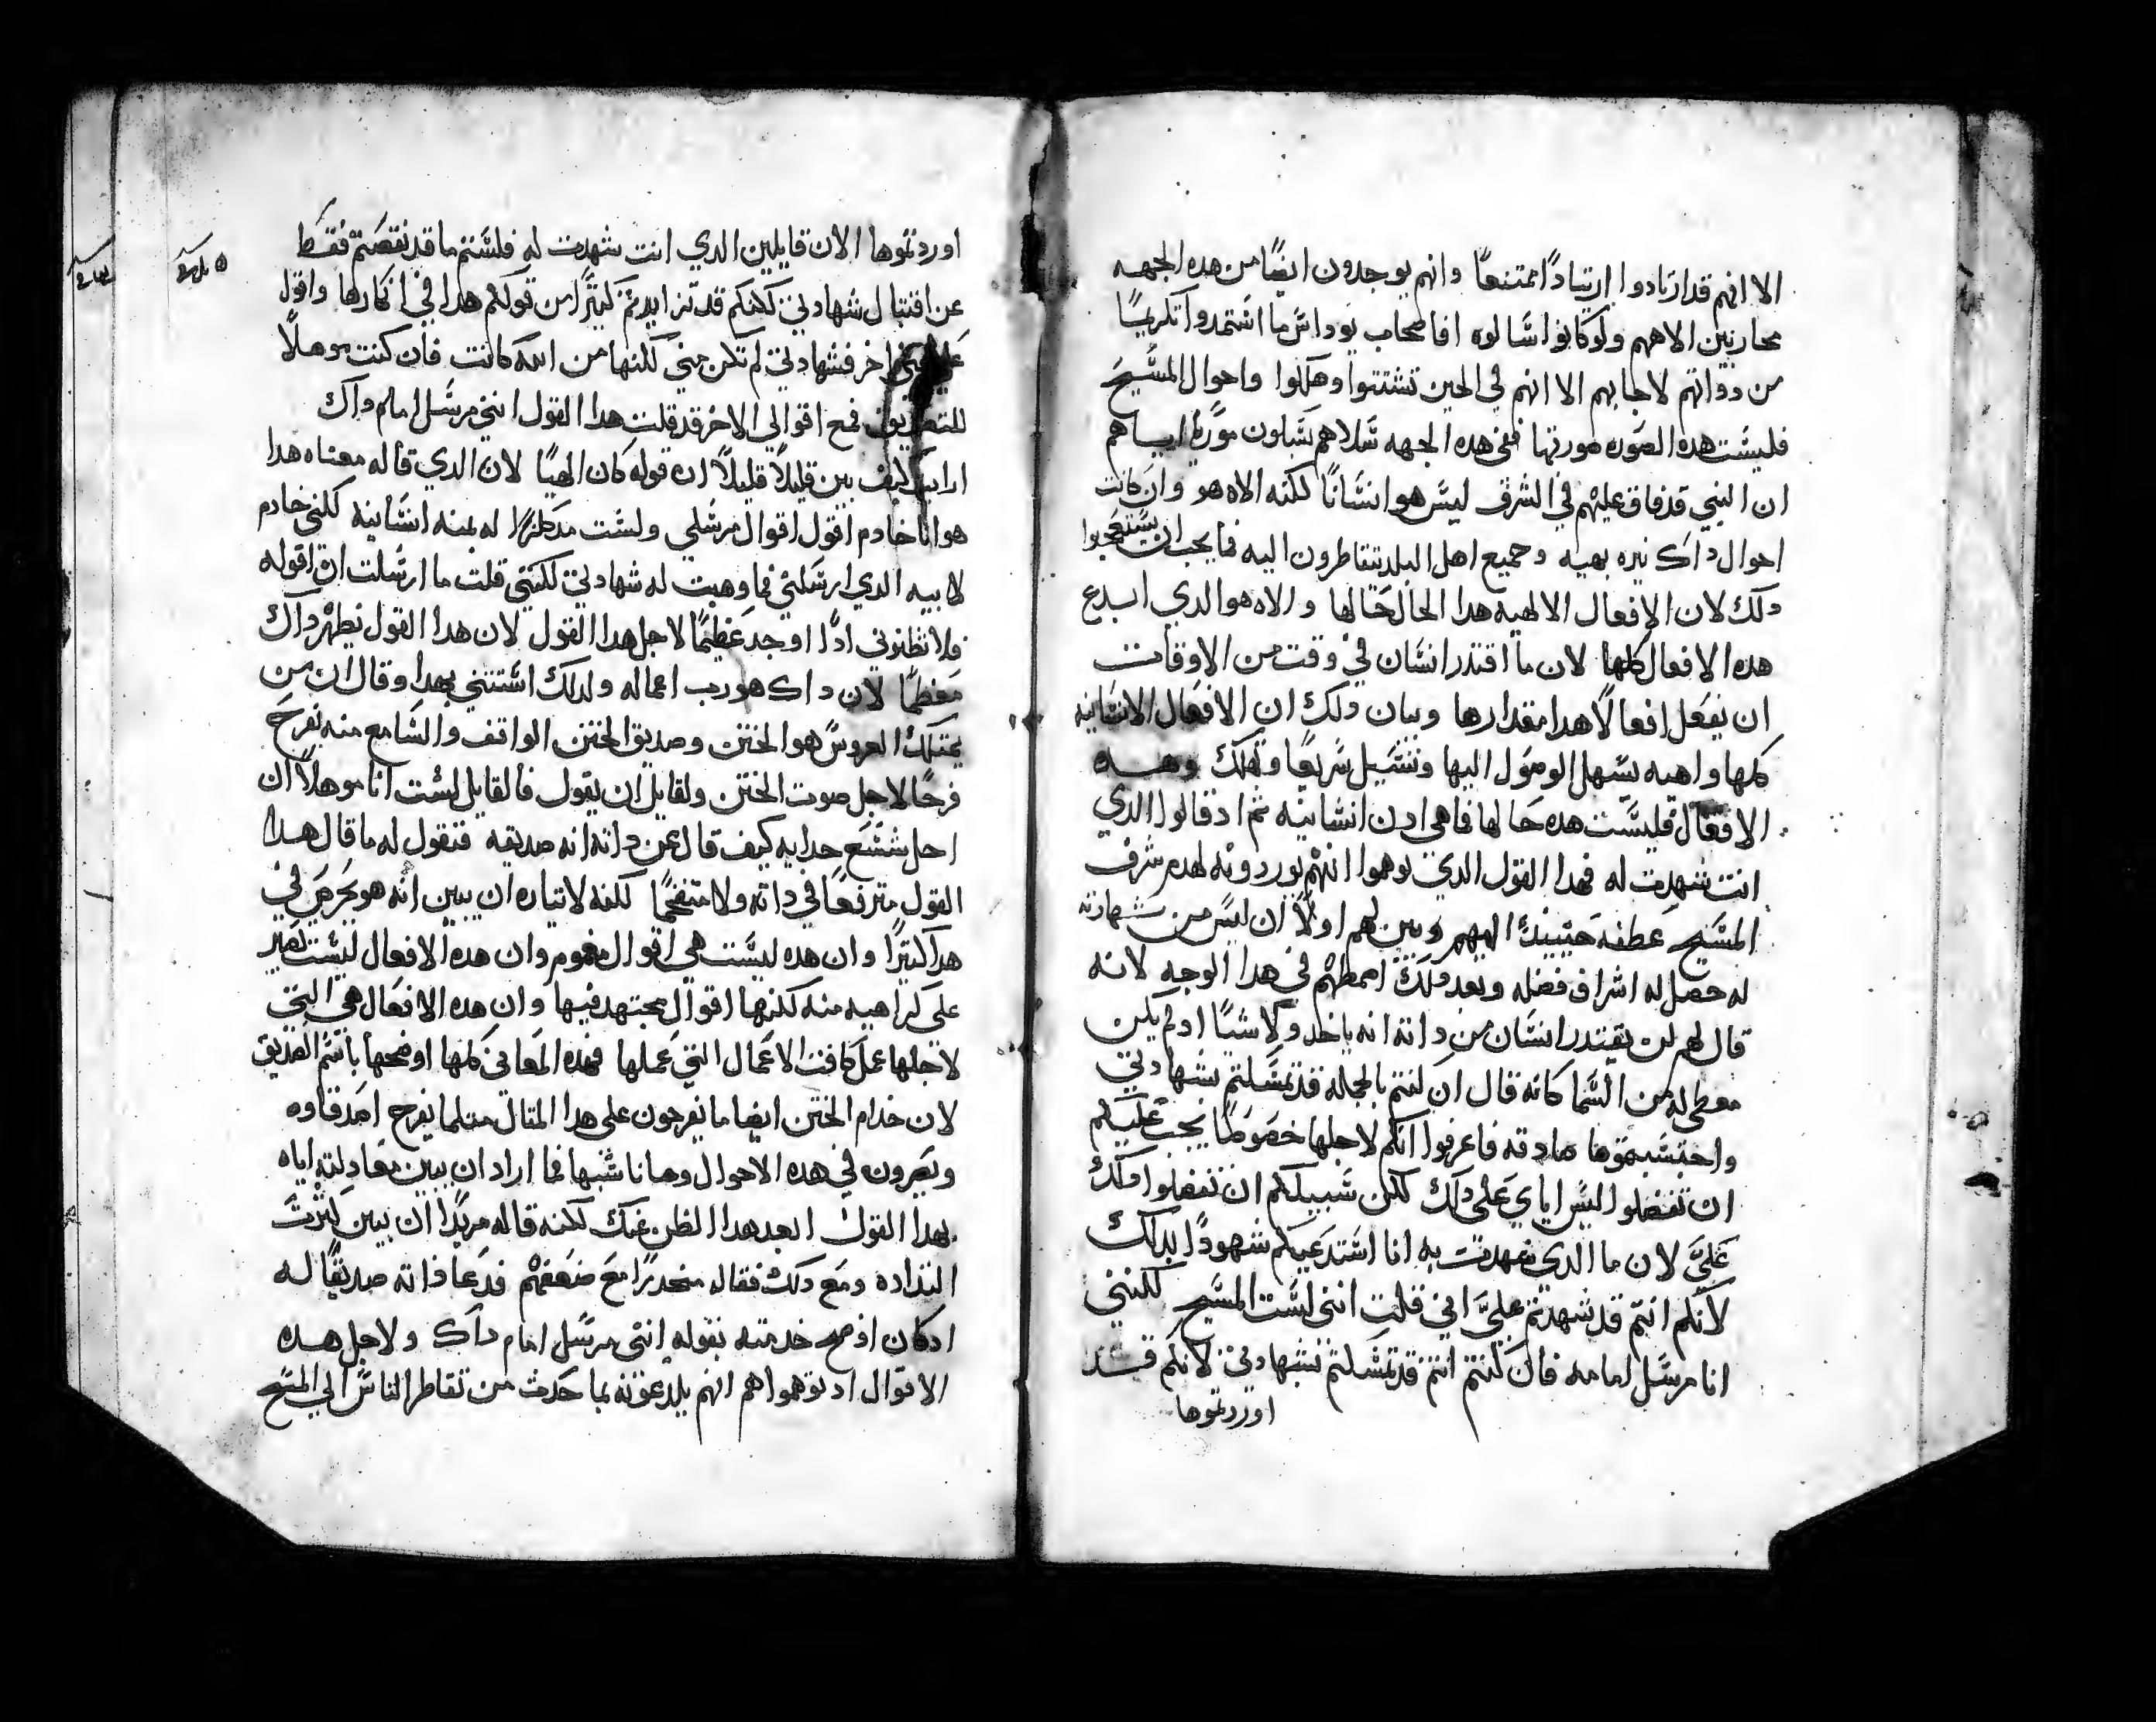 الا انهم قد ارتادوا ارتيادًا ممتنعًا وانهم يوجدون ايضًا من هده الجهه
محاربين الاههم ولو كانوا سالوه افاصحاب يوداس ما استمدوا تكريسًا
من دواتهم لاجابهم الا انهم في الحين تشتتوا وهلكوا واحوال المسيح
فليست هده الصوره صورتها ففي هده الجهه سلاهم
ان النبي قد فاق عليهم في الشرف ليس هو انسانًا لكنه الاه هو وان كانت
احوال داك نيره بهيه وجميع اهل البلد تتقاطرون اليه فما يجب ان يستعجبوا
دلك لان الافعال الالهيه هدا الحال حالها والاه هو الدي ابدع
هده الافعال كلها لان ما اقتدر انسان في وقت من الاوقات
ان يفعل افعالًا هدا مقدارها وبيان دلك ان الافعال الانسانيه
كلها واهيه يسهل الوصول اليها وتسيل سريعًا وتهلك وهده
الافعال فليست هده حالها فما هي ادن انسانيه ثم اد قالوا الدي
انت شهدت له فهدا القول الدي توهموا انهم يوردونه لهدم شرف
المسيح عطفه حينيدٍ اليهم وبين لهم اولًا ان ليس من شهادته
له حصل له اشراف فضله وبعد دلك اصمطهم في هدا الوجه لانه
قال لهم لن يقتدر انسان من داته انه ياخد ولا شيًا اد لم يكن
معطى له من السما كانه قال ان كنتم بالجمله قد تمسلتم بشهادتي
واحتسبتموها صادقه فاعرفوا انكم لاجلها خصوصًا يجب عليكم
ان تفضلوا ليس اياي على دلك لكن سبيلكم ان تفضلوا دلك
عليَّ لان ما الدي شهدت به انا استدعيكم شهودًا بدلك
لانكم انتم قد شهدتم عليَّ اني قلت انني لست المسيح لكنني
انا مرسل امامه فان كنتم انتم قد تمسلتم بشهادتي لانكم قد
اوردتموها
اوردتموها الان قايلين الدي انت شهدت له فلستم ما قد نقصتم فقط
عن اقتبال شهادتي لكنكم قد تزايدتم كثيرًا من قولكم هدا في انكارها واقول
اخر فشهادتي لم تكن مني لكنها من الله كانت فان كنت موهلًا
للتصديق فمع اقوالي الاخر قد قلت هدا القول انني مرسل امام داك
ارايت كيف بين قليلًا قليلًا ان قوله كان الهيًا لان الدي قاله معناه هدا
هو انا خادم اقول اقوال مرسلي ولست له بمنه انسانيه لكني خادم
لابيه الدي ارسلني فما وهبت له شهادتي لكنني قلت ما ارسلت ان اقوله
فلا تظنوني ادًا اوجد عظيمًا لاجل هدا القول لان هدا القول يظهر داك
معظمًا لان داك هو رب اعماله ولدلك استثنى بهدا وقال ان من
يمتلك العروس هو الختن وصديق الختن الواقف والسامع منه يفرح
فرحًا لاجل صوت الختن ولقايل ان يقول فالقايل لست انا موهلًا ان
احل شسع حدايه كيف قال عن داته انه صديقه فنقول له ما قال هدا
القول مترفعًا في داته ولا متفخمًا لكنه لايثاره ان يبين انه هو يحرص في
هدا كثيرًا وان هده ليست هي اقوال مغموم وان هده الافعال ليست تصير
على كراهيه منه لكنها اقوال مجتهد فيها وان هده الافعال هي التي
لاجلها عمل كافت الاعمال التي عملها فهده المعاني كلها اوضحها باسم الصديق
لان خدام الختن ايضا ما يفرحون على هدا المثال مثلما يفرح اصدقاوه
ويصيرون في هده الاحوال فما اراد ان يبين معادلته اياه
بهدا القول ابعد هدا الظن عنك لكنه قاله مريدًا ان يبين كثرت
التداده ومع دلك فقاله منحدرًا مع ضعفهم فدعا داته صديقًا له
ادكان اوضح خدمته بقوله انني مرسل امام داك ولاجل هده
الاقوال اد توهموا هم انهم يلدعونه بما حدث من تقاطر الناس الي المسيح